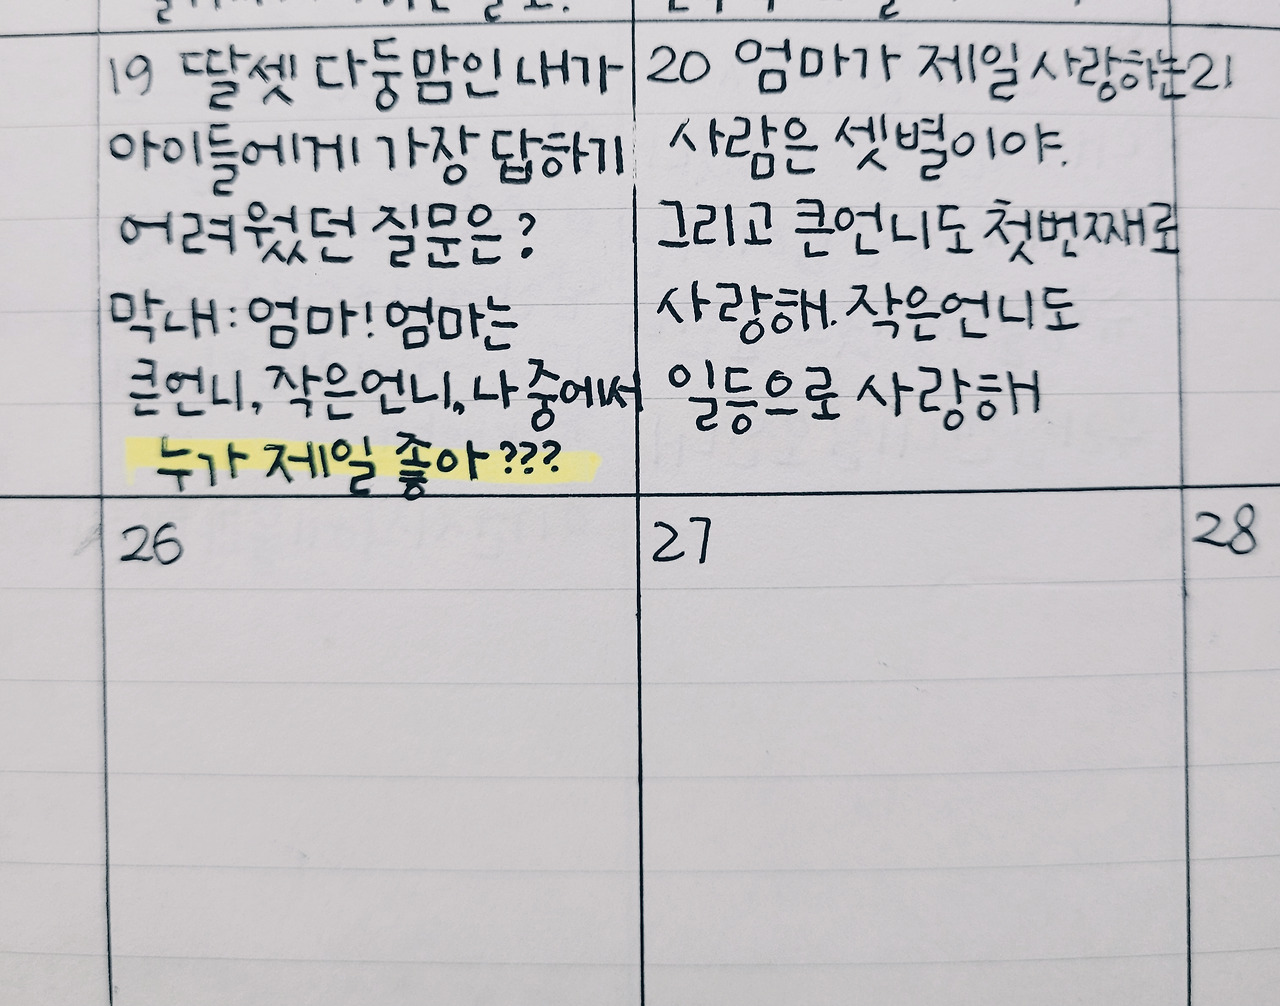 19 딸셋 다둥맘인 내가
아이들에게 가장 답하기
어려웠던 질문은?
막내: 엄마! 엄마는
큰언니, 작은언니, 나 중에서
누가 제일 좋아???
20 엄마가 제일 사랑하는
사람은 셋별이야.
그리고 큰언니도 첫번째로
사랑해. 작은언니도
일등으로 사랑해
21
26
27
28